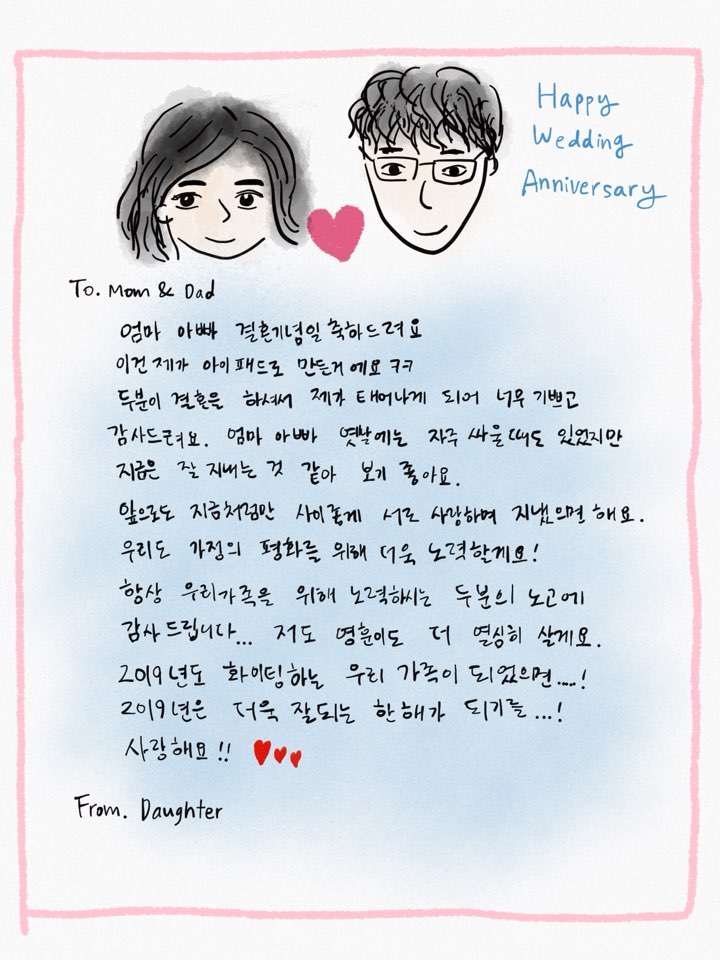 Happy
Wedding
Anniversary
To. Mom & Dad
엄마 아빠 결혼기념일 축하드려요
이건 제가 아이패드로 만든거에요 ㅋㅋ
두분이 결혼을 하셔서 제가 태어나게 되어 너무 기쁘고
감사드려요. 엄마 아빠 옛날에는 자주 싸울때도 있었지만
지금은 잘 지내는 것 같아 보기 좋아요.
앞으로도 지금처럼만 사이좋게 서로 사랑하며 지냈으면 해요.
우리도 가정의 평화를 위해 더욱 노력할게요!
항상 우리가족을 위해 노력하시는 두분의 노고에
감사드립니다... 저도 영훈이도 더 열심히 살게요.
2019년도 화이팅하는 우리 가족이 되었으면....!
2019년은 더욱 잘되는 한해가 되기를...!
사랑해요!!
From. Daughter